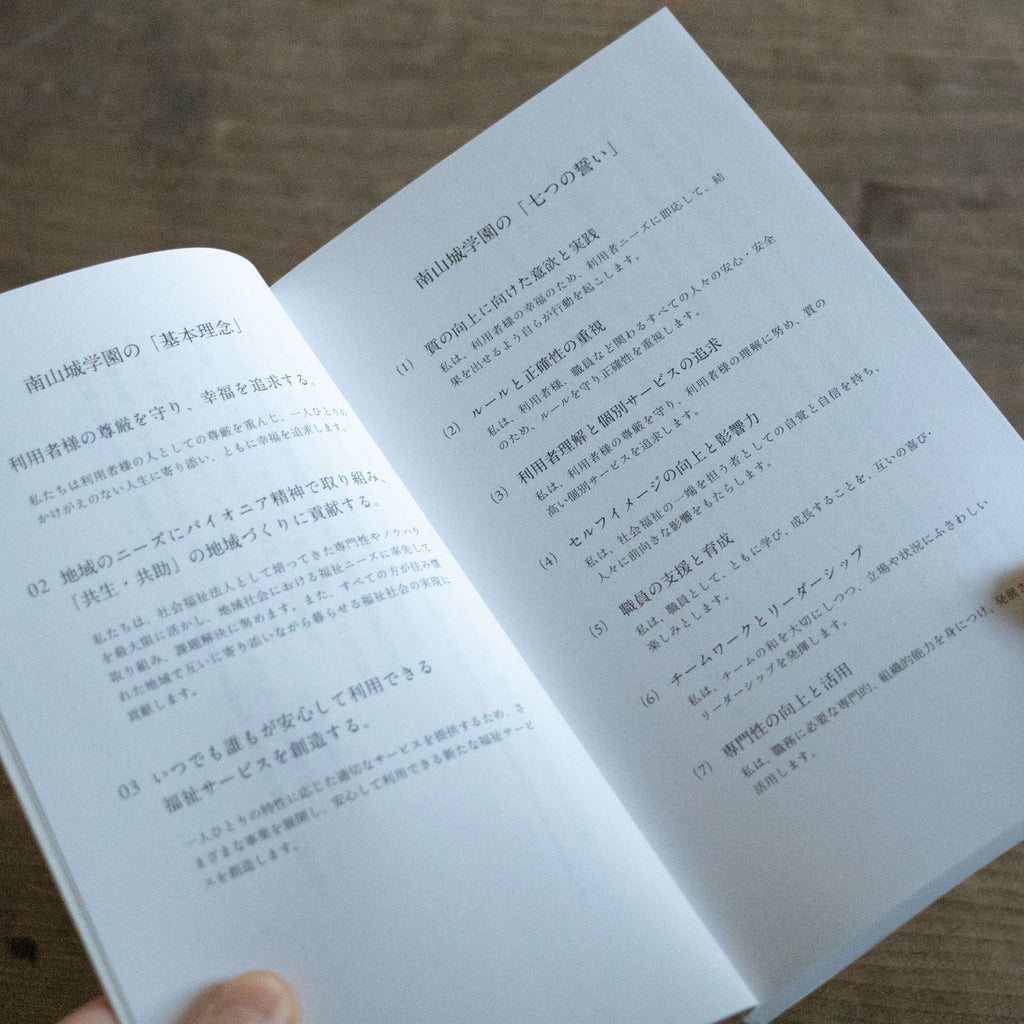 南山城学園の「基本理念」
利用者様の尊厳を守り、幸福を追求する。
私たちは利用者様の人としての尊厳を重んじ、一人ひとりの
かけがえのない人生に寄り添い、ともに幸福を追求します。
02 地域のニーズにパイオニア精神で取り組み、
「共生・共助」の地域づくりに貢献する。
私たちは、社会福祉法人として培ってきた専門性やノウハウ
を最大限に活かし、地域社会における福祉ニーズに率先して
取り組み、課題解決に努めます。また、すべての方が住み慣
れた地域で互いに寄り添いながら暮らせる福祉社会の実現に
貢献します。
03 いつでも誰もが安心して利用できる
福祉サービスを創造する。
一人ひとりの特性に応じた適切なサービスを提供するため、さ
まざまな事業を展開し、安心して利用できる新たな福祉サービ
スを創造します。
南山城学園の「七つの誓い」
(1) 質の向上に向けた意欲と実践
私は、利用者様の幸福のため、利用者ニーズに即応して、結
果を出せるよう自らが行動を起こします。
(2) ルールと正確性の重視
私は、利用者様、職員など関わるすべての人々の安心・安全
のため、ルールを守り正確性を重視します。
(3) 利用者理解と個別サービスの追求
私は、利用者様の尊厳を守り、利用者様の理解に努め、質の
高い個別サービスを追求します。
(4) セルフイメージの向上と影響力
私は、社会福祉の一端を担う者としての自覚と自信を持ち、
人々に前向きな影響をもたらします。
(5) 職員の支援と育成
私は、職員として、ともに学び、成長することを、互いの喜び・
楽しみとします。
(6) チームワークとリーダーシップ
私は、チームの和を大切にしつつ、立場や状況にふさわしい
リーダーシップを発揮します。
(7) 専門性の向上と活用
私は、職務に必要な専門的、組織的能力を身につけ、発展
活用します。